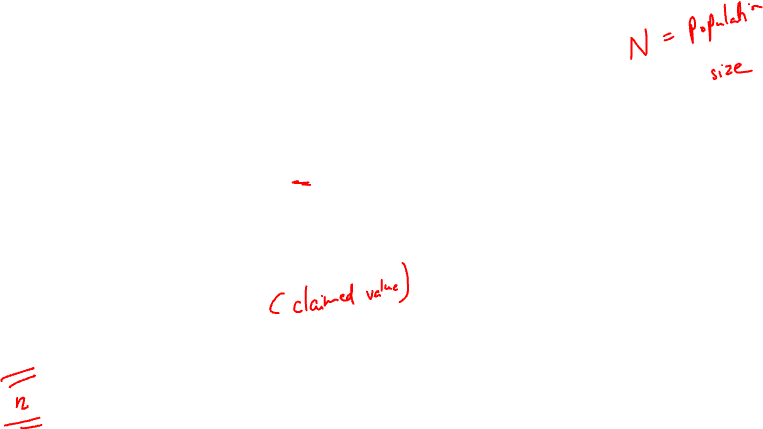 N = Population
size
(claimed value)
n